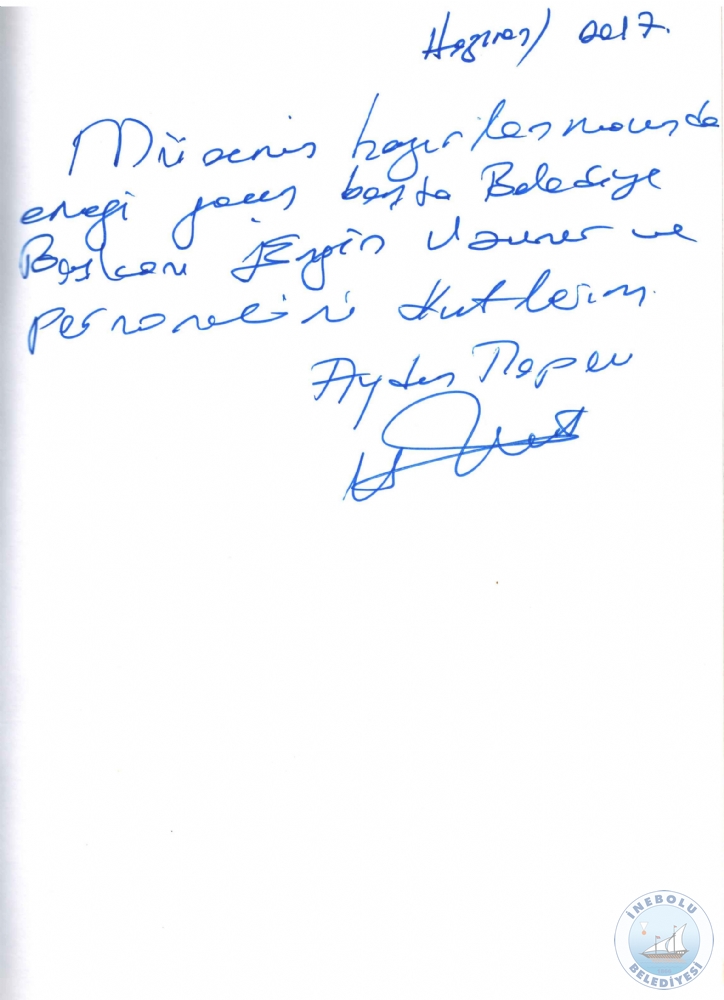 Haziran / 2017.
Müzenin hazırlanmasında
emeği geçen başta Belediye
Başkanı Engin Uzuner ve
personelini kutlarım
Aydan
İNEBOLU
BELEDİYESİ